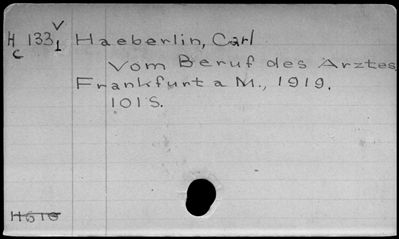 V
H 133 1 Haeberlin, Carl
C
Vom Beruf des Arztes,
Frankfurt a M., 1919.
101 S.